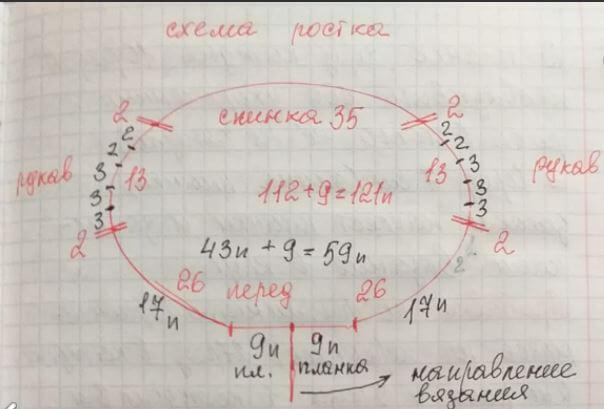 схема ростка
2 спинка 35 2
2 2
2 2
рукав 3 13 13 3 рукав
3 112+9=121п 3
3 3
2 43п + 9 = 59п 2
2
26 перед 26
17п 17п
9п 9п
пл. планка направление
вязания